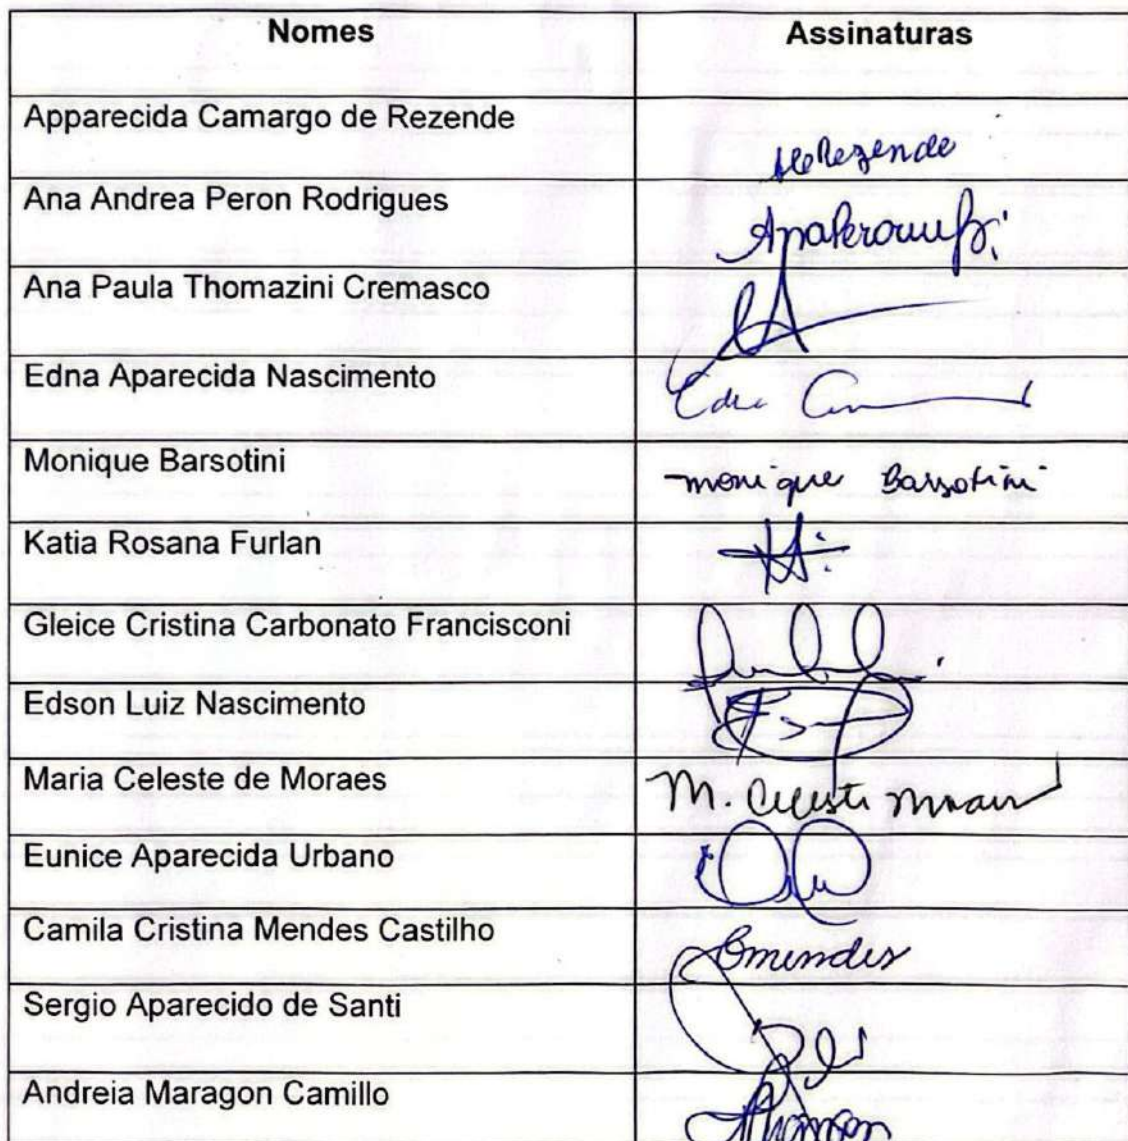 Nomes Assinaturas
Apparecida Camargo de Rezende
Rezende
Ana Andrea Peron Rodrigues
Ana Paula Thomazini Cremasco
Edna Aparecida Nascimento
Monique Barsotini
monique Barsotini
Katia Rosana Furlan
Gleice Cristina Carbonato Francisconi
Edson Luiz Nascimento
Maria Celeste de Moraes
M. Celeste
Eunice Aparecida Urbano
Camila Cristina Mendes Castilho
Cmendes
Sergio Aparecido de Santi
Andreia Maragon Camillo